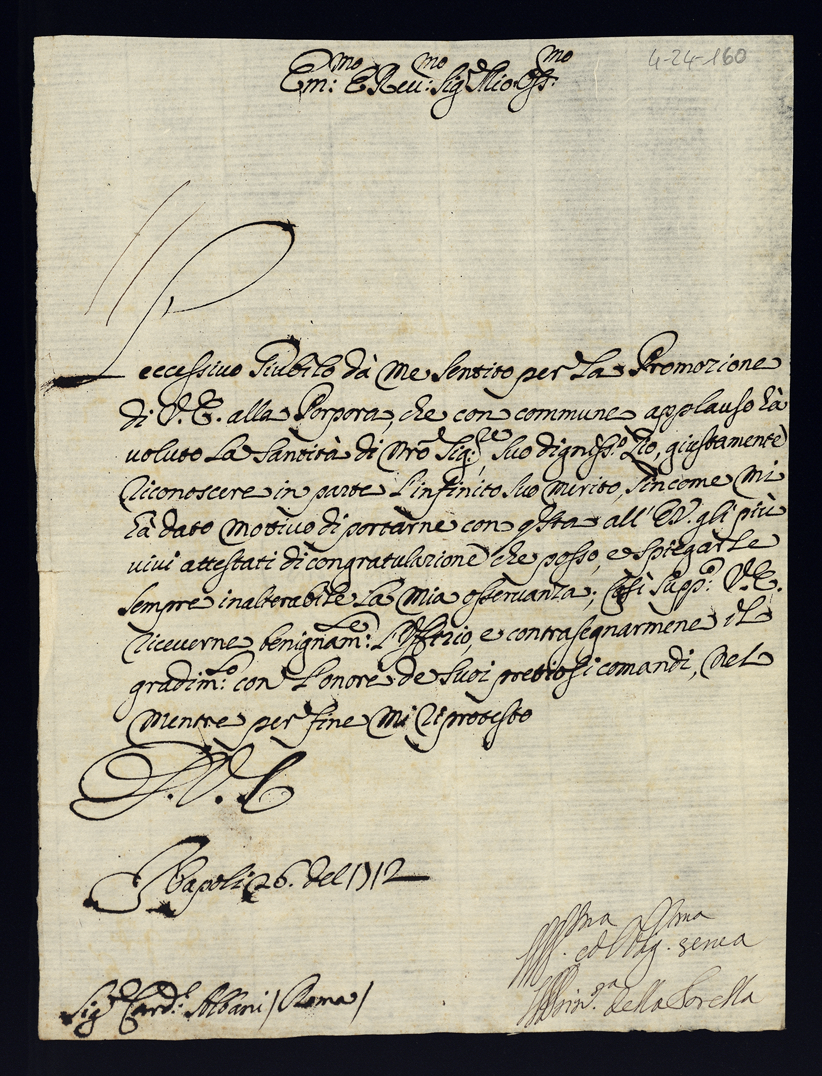 4-24-160
Em:mo E Reu:mo Sig.re Mio Oss:mo
L'eccessiuo Giubilo dà me sentito per la Promozione
di V.E. alla Porpora, che con commune applauso hà
voluto la Santità di Nro Sig:re, suo dignis:o Zio, giustamente
riconoscere in parte l'infinito suo merito, sincome mi
hà dato motivo di portarne con qsta all'E.V. gli più
vivi attestati di congratulazione che posso, e spiegarle
sempre inalterabile la mia osseruanza; Così supp:o V.E.
riceverne benignam:te l'Offitio, e contrasegnarmene il
gradim:to con l'onore de suoi pretiosi comandi, nel
mentre per fine mi riprotesto
D.V.E.
Napoli 26. del 1712
ma ma
ed Oblig. serua
Sig.re Card:l Albani / Roma /
Prin:sa della Torella